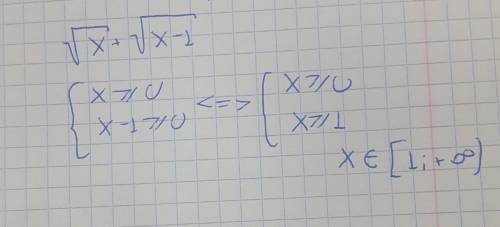 √x + √(x-1)
{ x ⩾ 0 <=> { x ⩾ 0
x-1 ⩾ 0 x ⩾ 1
x ∈ [1; +∞)